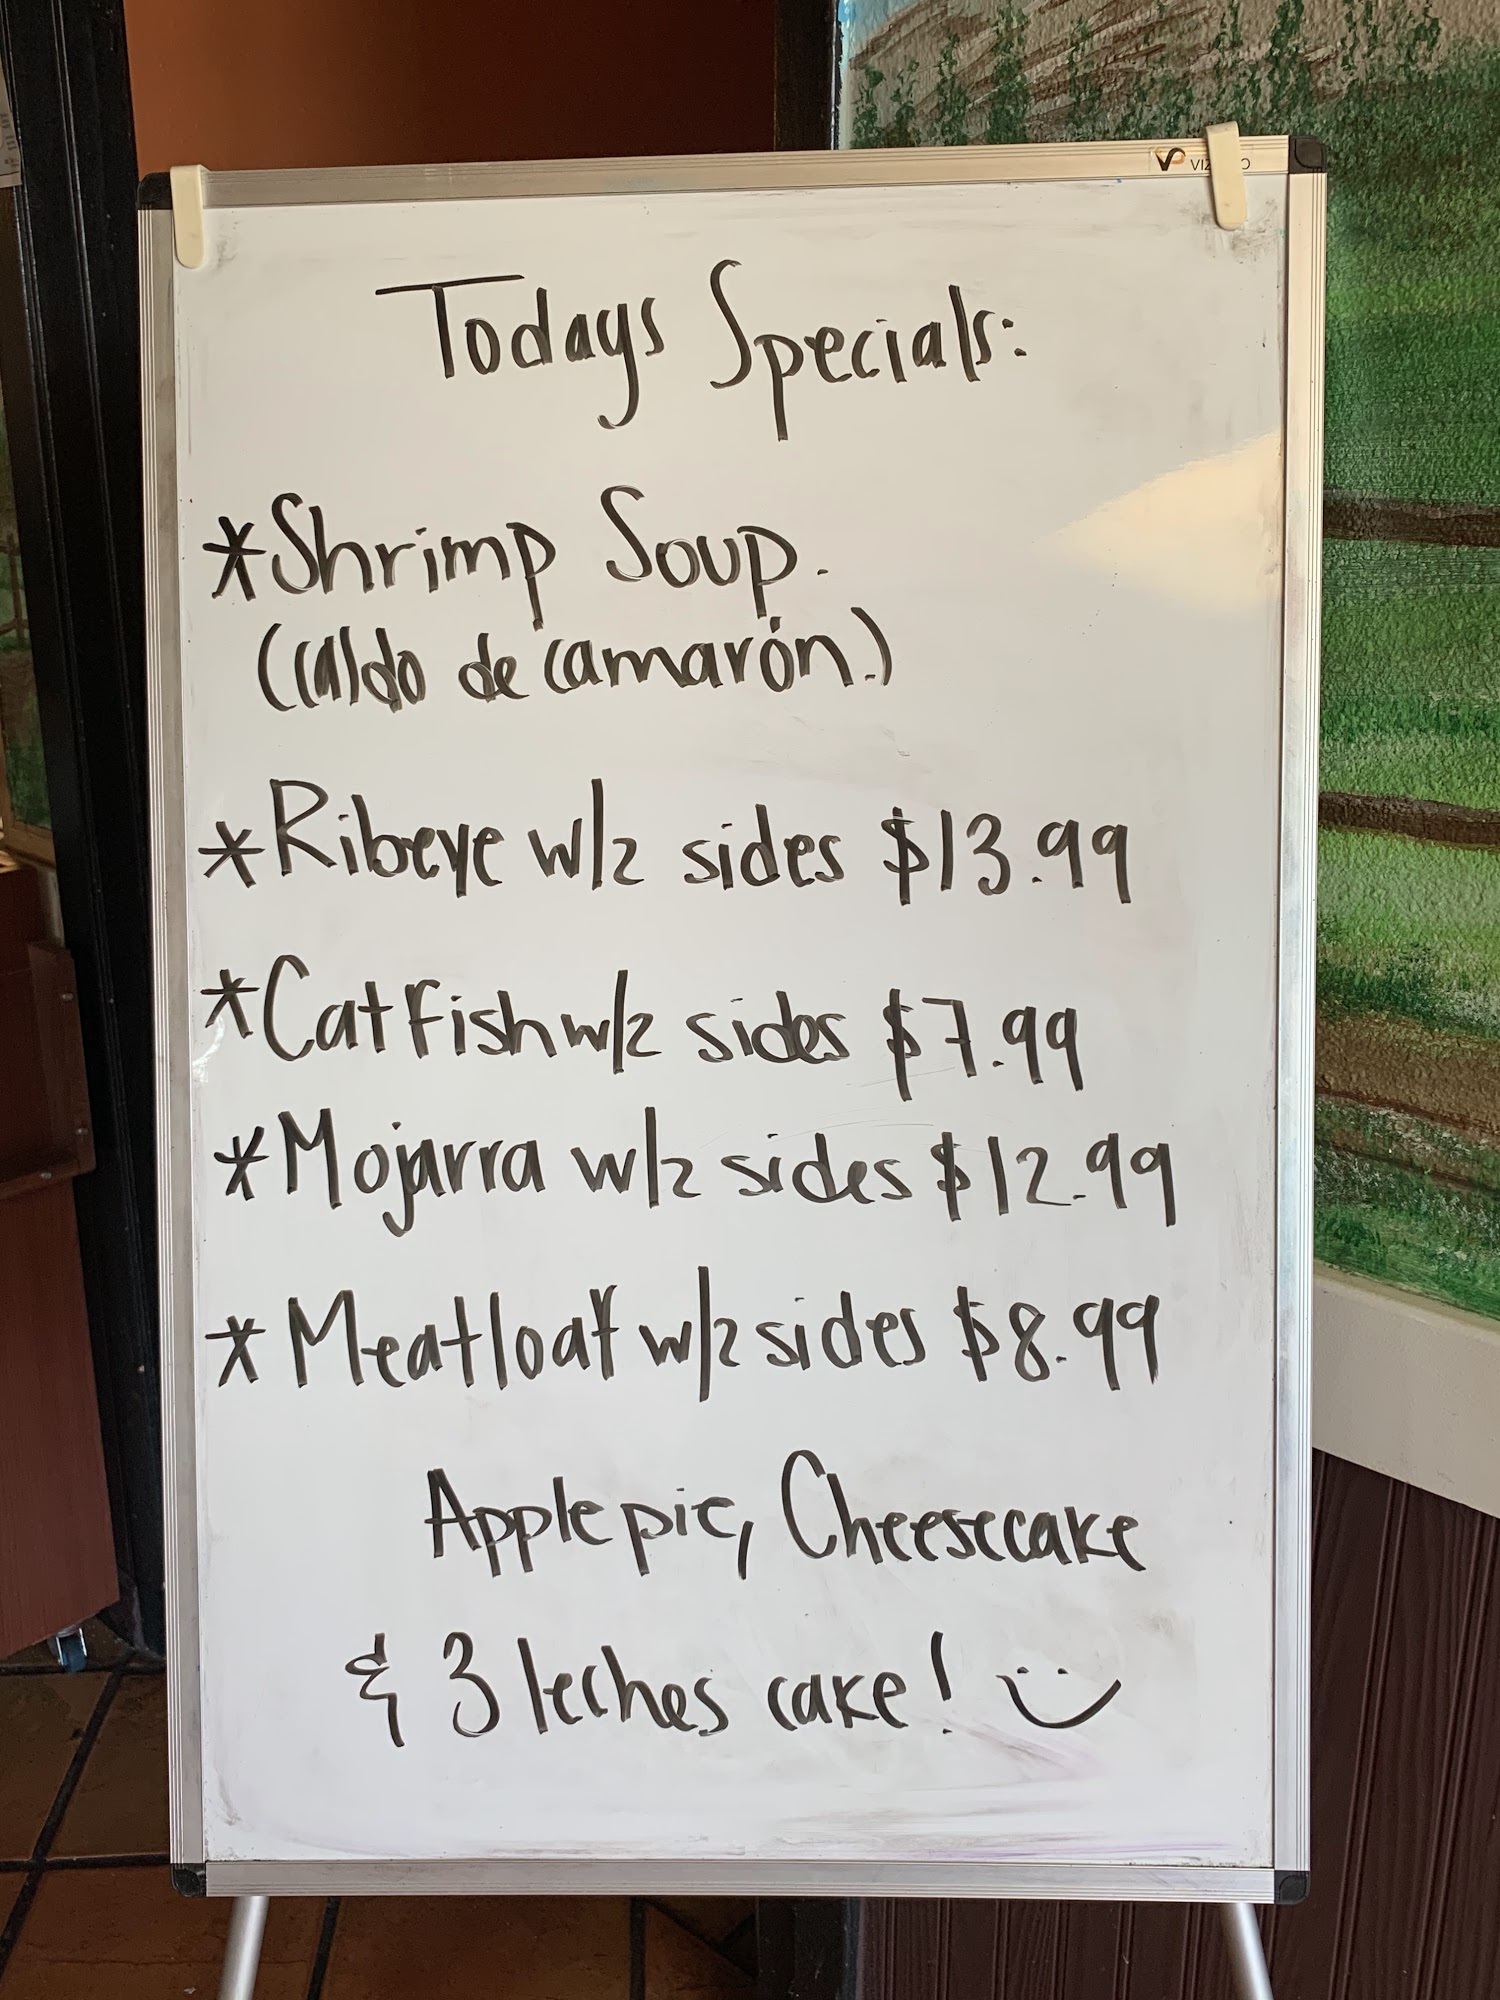 Todays Specials:
*Shrimp Soup.
(caldo de camarón.)
*Ribeye w/2 sides $13.99
*Catfish w/2 sides $7.99
*Mojarra w/2 sides $12.99
*Meatloaf w/2 sides $8.99
Apple pie, Cheesecake
& 3 leches cake!